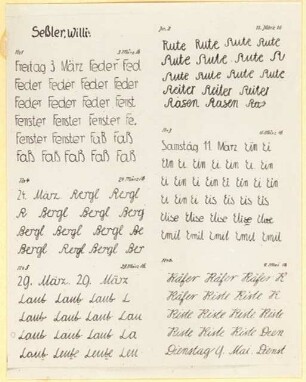 Seßler, Willi.
No 1 3. März 16
Freitag 3 März Feder Fed
Feder Feder Feder Feder
Feder Feder Feder Fenst
Fenster Fenster Fenster Fe.
Fenster Fenster Faß Faß
Faß Faß Faß Faß Faß
No 4 24. März 16
24. März. Bergl Bergl
B Bergl Bergl Bergl
Bergl Bergl Bergl Be
Bergl Bergl Bergl Ber
No 5 29. März 16
29. März. 29. März
Laub Laub Laub L
Laub Laub Laub Lau
Laub Laub Laub La
Laub Leute Leute Leu
No. 2 10. März 16
Rute Rute Rute Rute
Rute Rute Rute R
Rute Rute Rute Rute
Reiter Reiter Reiter
Rasen Rasen Ras
No 3
Samstag 11. März Ein Ei
Ein Ei Ein Ei Ein Ei
Ei Ein Ei Ein Ei Ein
Ei Ein Eis Eis Eis Eis
Elise Elise Elise Elise
Emil Emil Emil Emil
No 6 9. Mai 16
Käfer Käfer Käfer K
Käfer Kiste Kiste K
Kiste Kiste Kiste Kiste
Kiste Kiste Kiste Dien
Dienstag 9. Mai Dienst